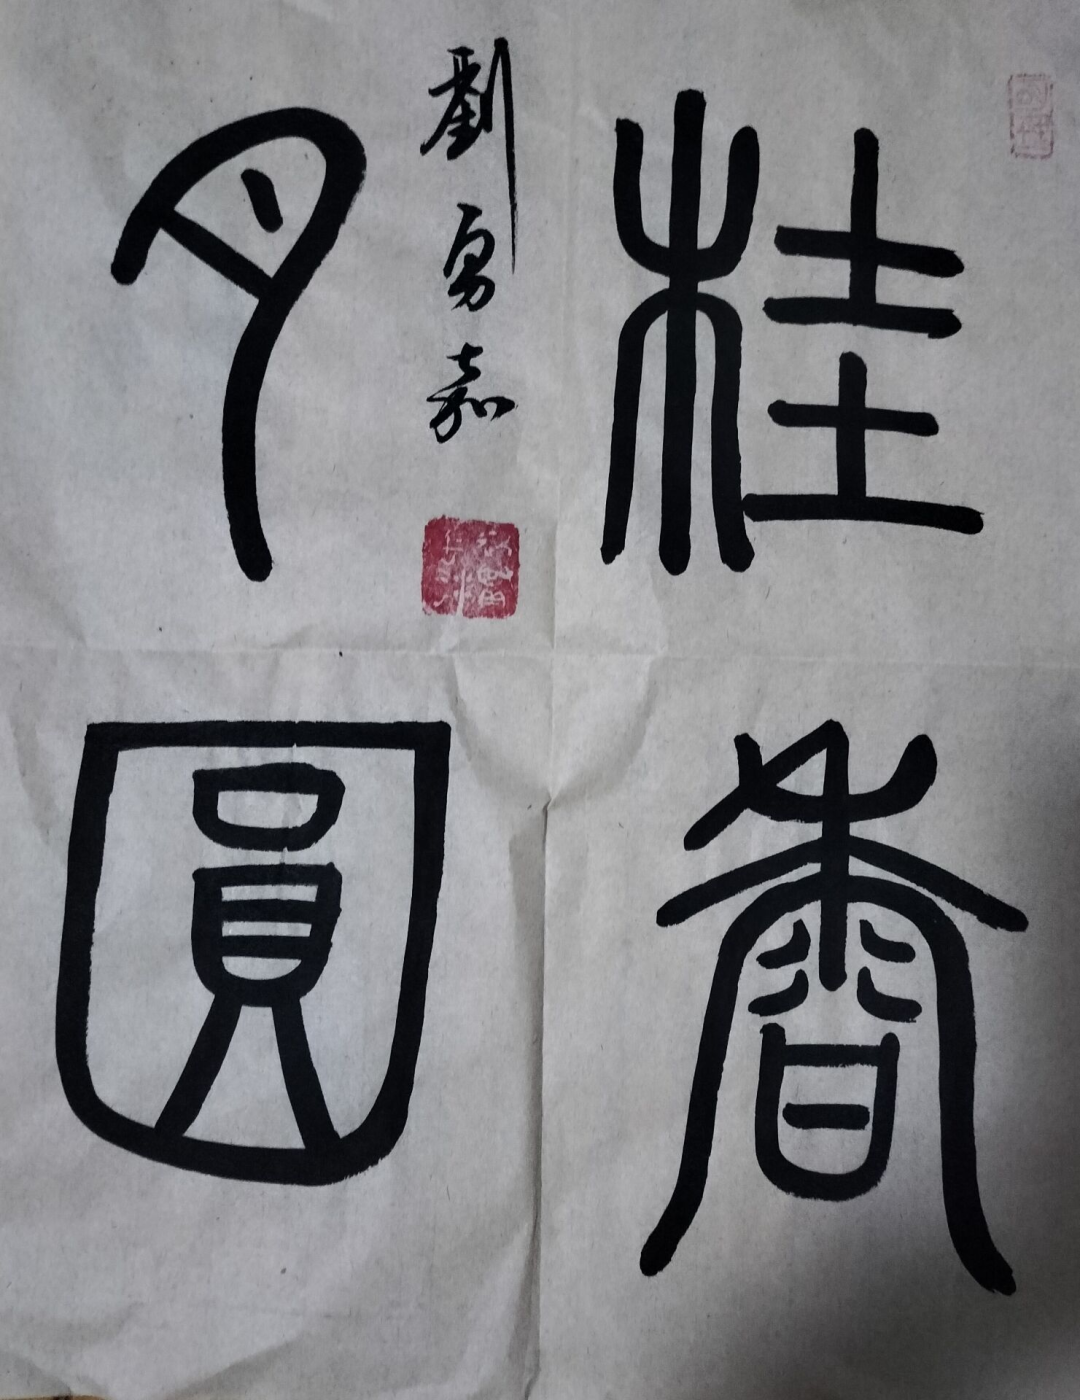 桂香
月圓
劉勇嘉